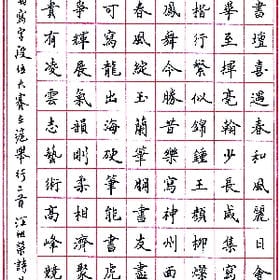 書壇喜遇春和風麗日
舉至揮毫翰少長咸集
楷行繁似錦鍾王顏柳
鳳舞今勝昔樂寫神州
春風綻玉蘭筆嫻書畫友
可寫龍出海硬筆龍
輝展氣韻剛柔筆濟
貴有凌雲志藝術高峰競
寫字段位大賽在滬舉行二首 江祖榮詩